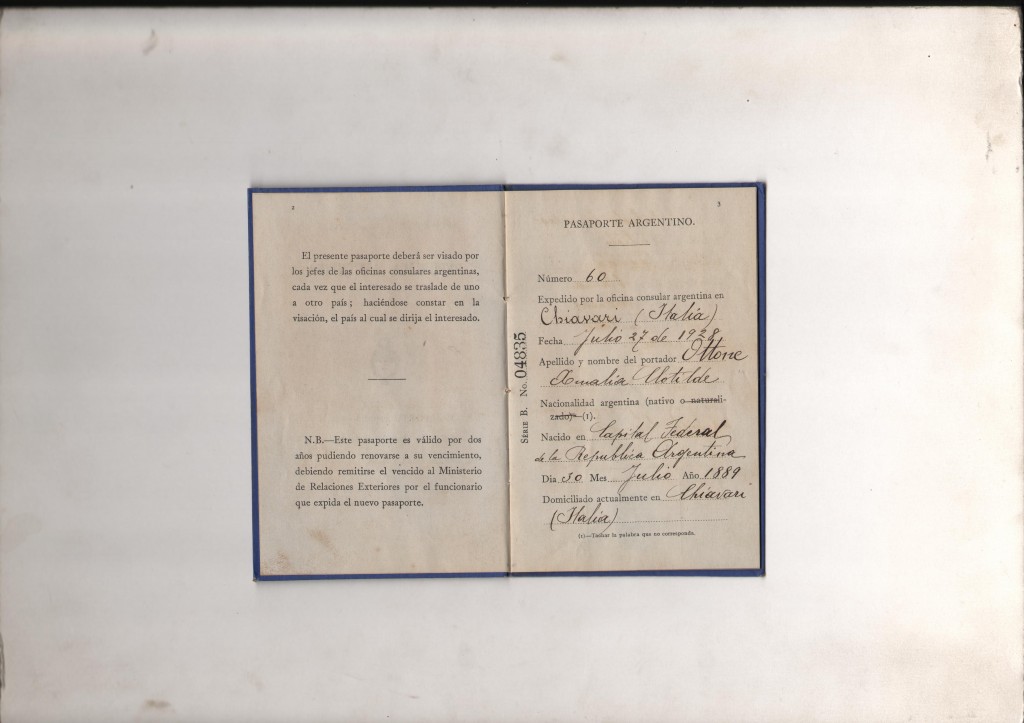 2
El presente pasaporte deberá ser visado por
los jefes de las oficinas consulares argentinas,
cada vez que el interesado se traslade de uno
a otro país; haciéndose constar en la
visación, el país al cual se dirija el interesado.
N.B.—Este pasaporte es válido por dos
años pudiendo renovarse a su vencimiento,
debiendo remitirse el vencido al Ministerio
de Relaciones Exteriores por el funcionario
que expida el nuevo pasaporte.
SÉRIE B. No. 04835
3
PASAPORTE ARGENTINO.
Número 60
Expedido por la oficina consular argentina en
Chiavari (Italia)
Fecha Julio 27 de 1928
Apellido y nombre del portador Ottone
Amalia Clotilde
Nacionalidad argentina (nativo o naturali-
zado) (1).
Nacido en Capital Federal
de la Republica Argentina
Día 30 Mes Julio Año 1889
Domiciliado actualmente en Chiavari
(Italia)
(1)—Tachar la palabra que no corresponda.